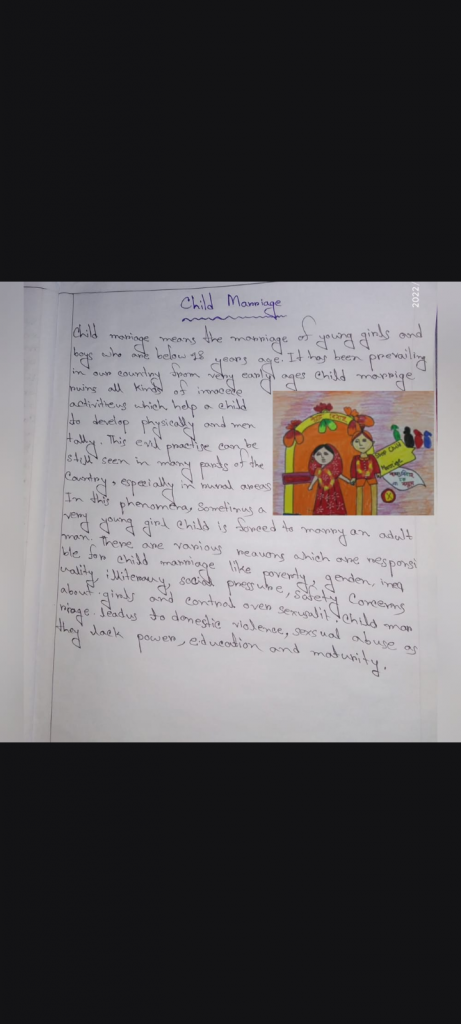 Child Marriage
2022/
Child marriage means the marriage of young girls and
boys who are below 18 years age. It has been prevailing
in our country from very early ages child marriage
ruins all kinds of innocece
activitieus which help a child
to develop physically and men
tally. This evil practise can be
still seen in many parts of the
Country, especially in rural areas
In this phenomena, sometimus a
very young girl child is forced to marry an adult
man. There are various reasons which are responsi
ble for child marriage like poverty, gender, ineq
uality, illiteracy, social pressure, safety concerns
about girls and control over sexualit. Child mar
riage leadus to domestic violence, sexual abuse as
they lack power, education and maturity.
Stop Child
Marriage